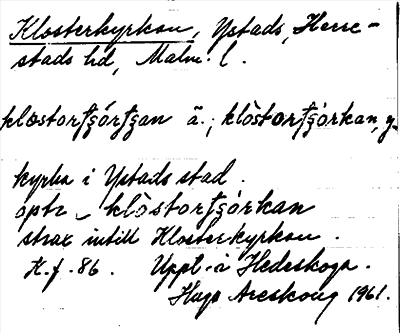 Klosterkyrkan, Ystads, Herre-
stads hd, Malm. l.
klostorţʒórţʒan ä.; klòstorţʒòrkan, y.
kyrka i Ystads stad.
klòstorţʒòrkan
strax intill Klosterkyrkan.
H.f. 86. Uppt. i Hedeskoga.
Hugo Areskoug 1961.